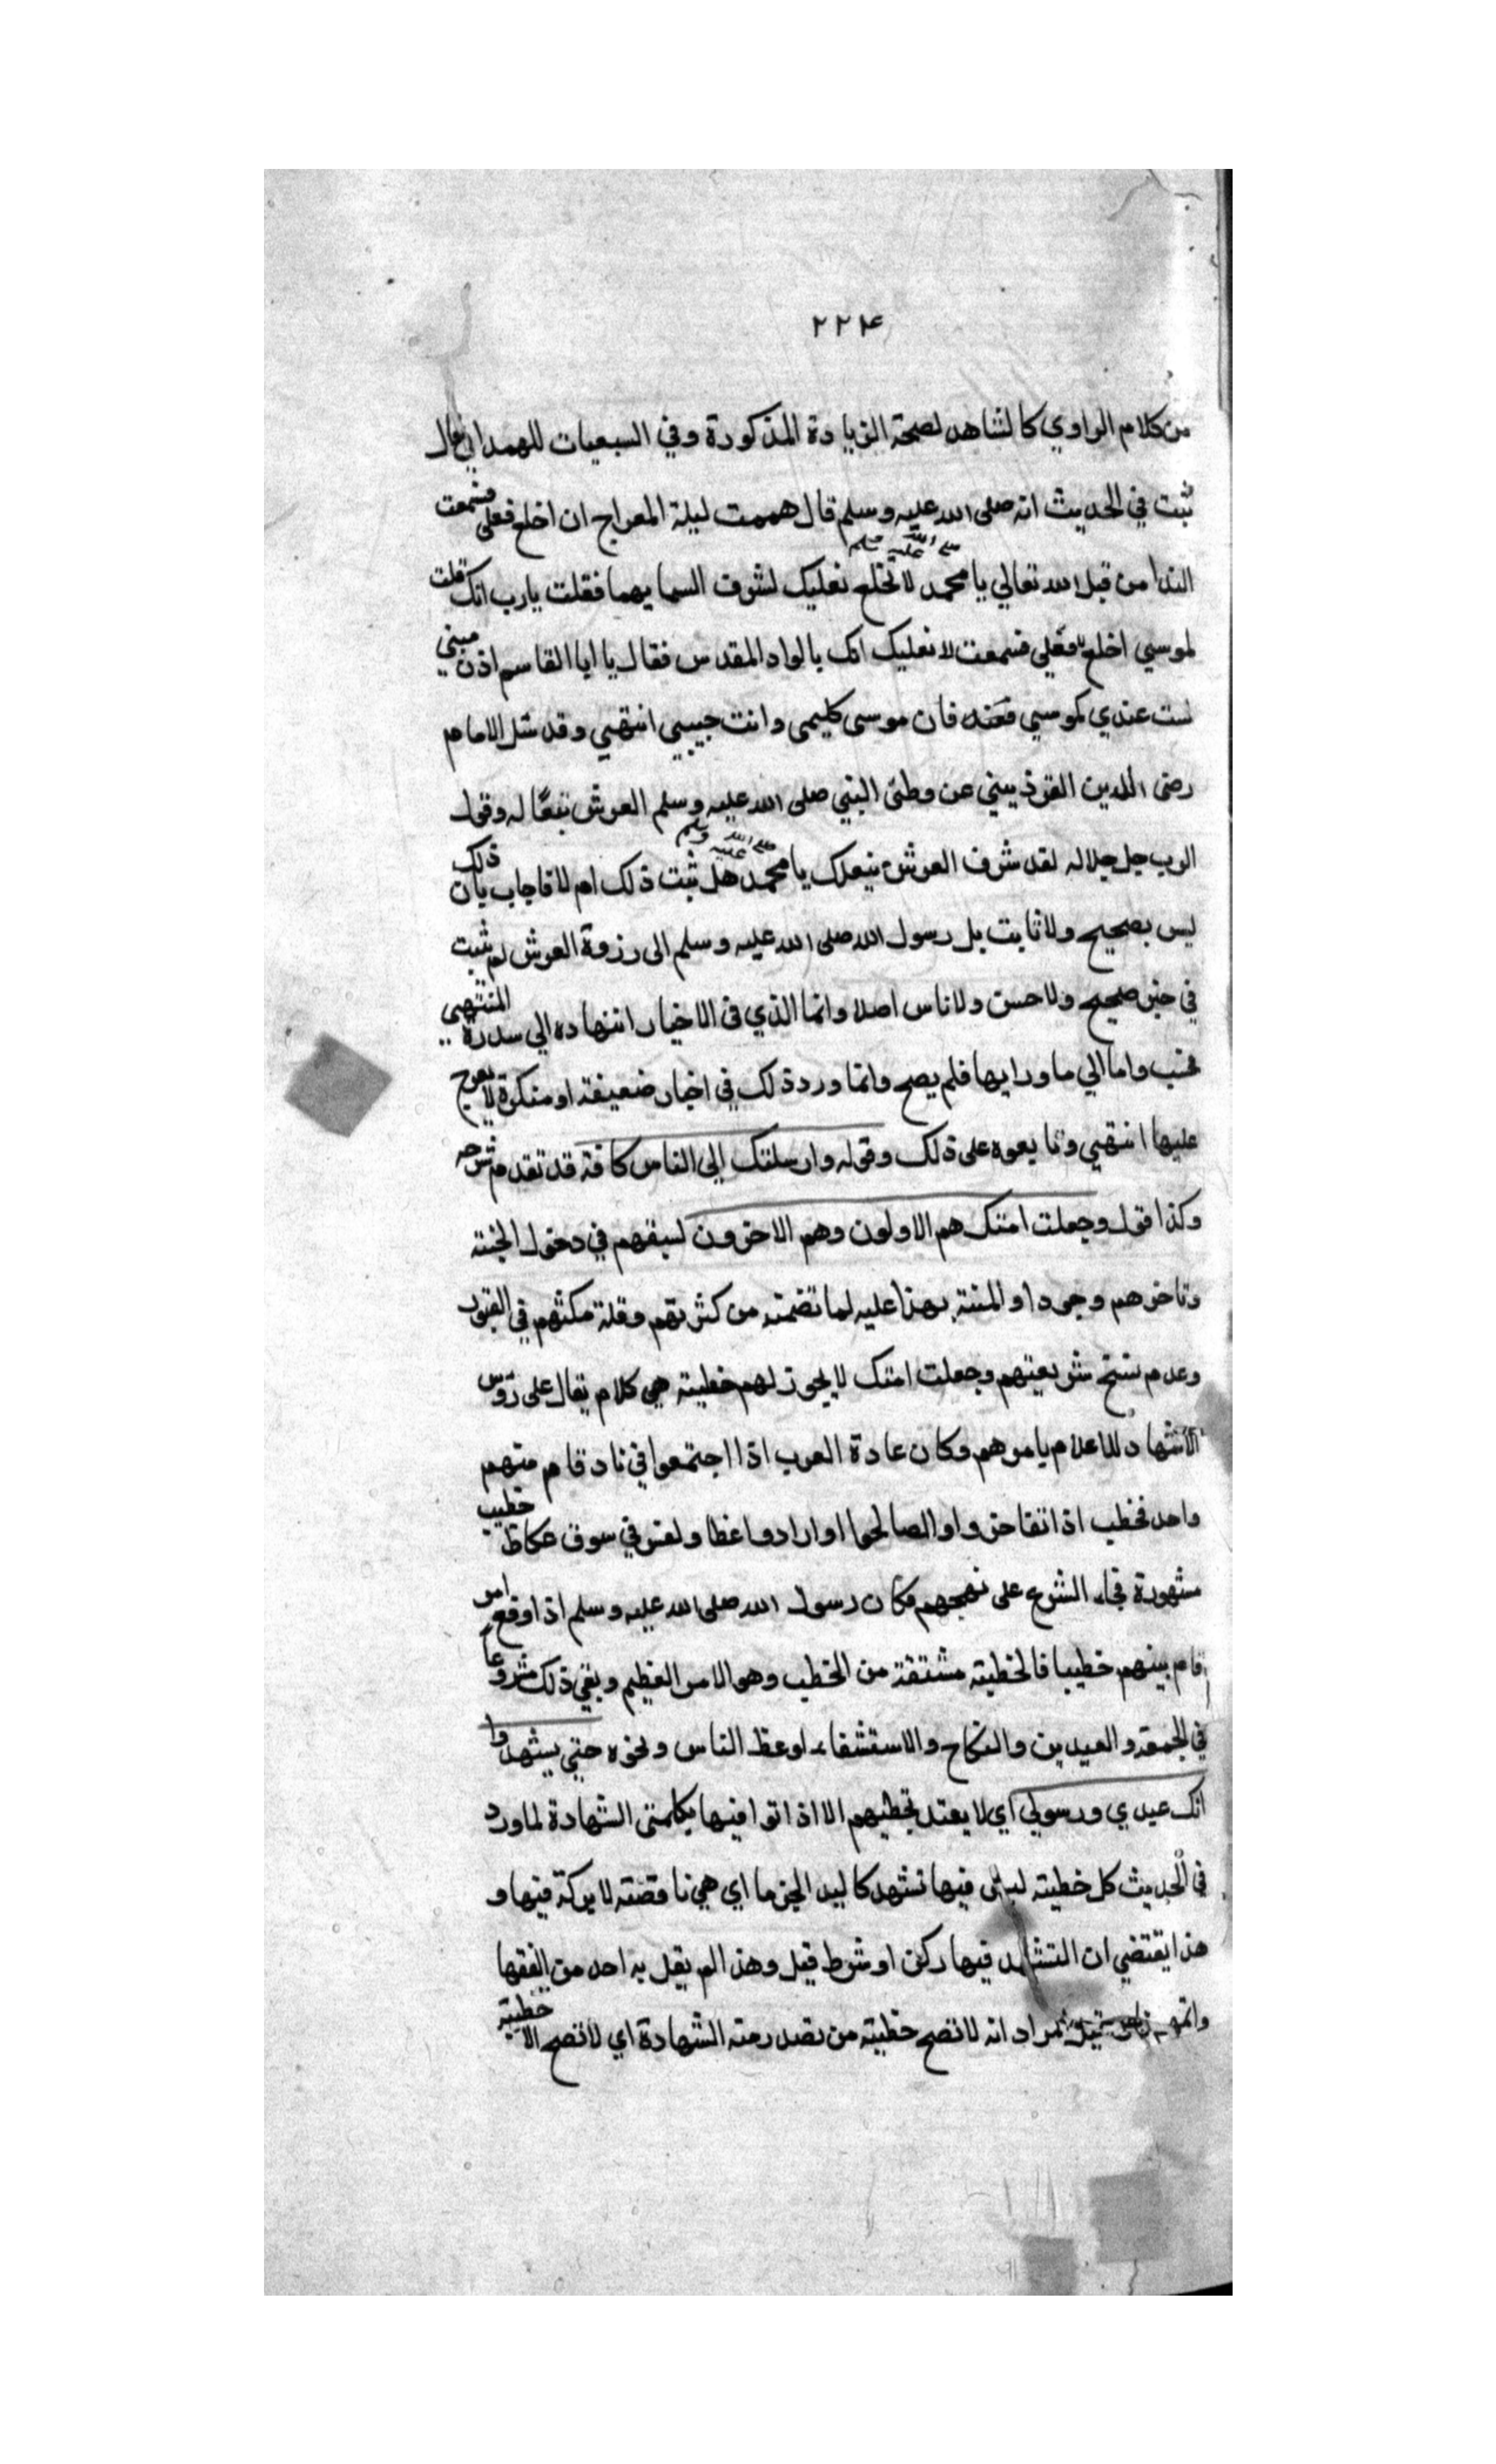 ٢٢٤
من كلام الراوي كالشاهد لصحة الزيادة المذكورة وفي السبعيات للهمداني قال
ثبت في الحديث انه صلى الله عليه وسلم قال هممت ليلة المعراج ان اخلع نعلى فسمعت
الندا من قبل الله تعالي يا محمد صلى الله عليه وسلم لا تخلع نعليك لشرف السما بهما فقلت يا رب انك قلت
لموسي اخلع نعليك انك بالواد المقدس فقال يا ابا القاسم اذن مني
لست عندي كموسي فانه موسى كليمى وانت حبيبي انتهي وقد سئل الامام
رضى الدين القزويني عن وطئ النبي صلى الله عليه وسلم العرش بنعله وقول
الرب جل جلاله لقد شرف العرش بنعلك يا محمد صلى الله عليه وسلم هل ثبت ذلك ام لا فاجاب بان ذلك
ليس بصحيح ولا ثابت بل رسول الله صلى الله عليه وسلم الى ذروة العرش لم يثبت
في خبر صحيح ولا حسن ولا ناس اصلا وانما الذي فى الاخبار انتهاده الي سدرة المنتهي
فحسب واما الي ما ورايها فلم يصح وانما ورد ذلك في اخبار ضعيفة او منكرة لا يعرج
عليها انتهي ونا يعوه على ذلك وقوله وارسلتك الي الناس كافة قد تقدم شرحه
وكذا قوله وجعلت امتك هم الاولون وهم الاخرون لسبقهم في دخول الجنته
وتاخرهم وجودا والمنته بهذا عليه لما تضمنه من كثرتهم وقلة مكثهم في القبور
وعدم نسخ شريعتهم وجعلت امتك لا يجوز لهم خطبته هي كلام يقال على رؤس
الاشهاد للاعلام يامرهم وكان عادة العرب اذا اجتمعوا في ناد قام منهم
واحد فخطب اذا تفاخروا او الصالحوا او ارادوا غظا ولقس في سوق عكاظ خطبت
مشهورة فجاء الشرع على نهجهم فكان رسول الله صلى الله عليه وسلم اذا وقع امر
قام بينهم خطيبا فالخطبته مشتقة من الخطب وهو الامر العظيم وبقي ذلك مشروعا
في الجمعة والعيدين والنكاح والاستشفاء لوعظ الناس ونحوه حتي يشهدوا
انك عبدي ورسولي اي لا يعتد بخطبهم الا اذا اتوا فيها بكلمتى الشهادة لما ورد
في الحديث كل خطبته ليس فيها تشهد كاليد الجزما اي هي ناقصته لا بركة فيها و
هذا يقتضي ان التشهد فيها ركن او شرط قيل وهذا لم يقل به احد من الفقها
قيل مراد انه لا تصح خطبته من الشهادة اي لا تصح الا خطبته